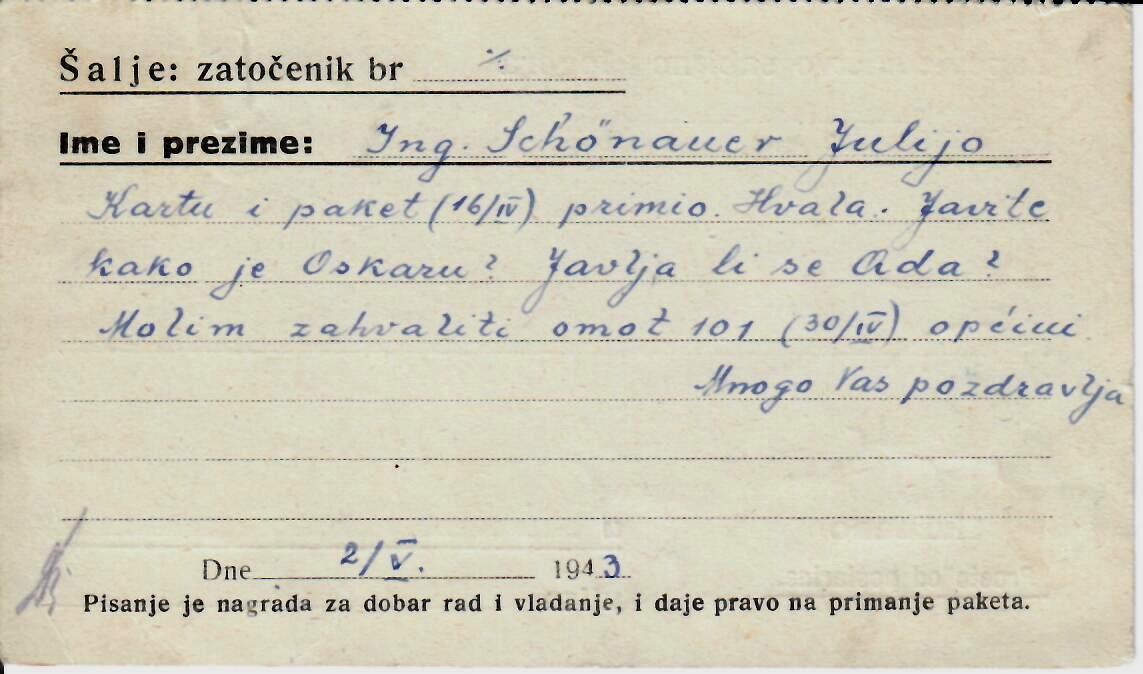 Šalje: zatočenik br ⁒
Ime i prezime: Ing. Schönauer Julijo
Kartu i paket (16/IV) primio. Hvala. Javite
kako je Oskaru? Javlja li se Ada?
Molim zahvaliti omot 101 (30/IV) općini.
Mnogo Vas pozdravlja
Dne 2/V. 1943
Pisanje je nagrada za dobar rad i vladanje, i daje pravo na primanje paketa.